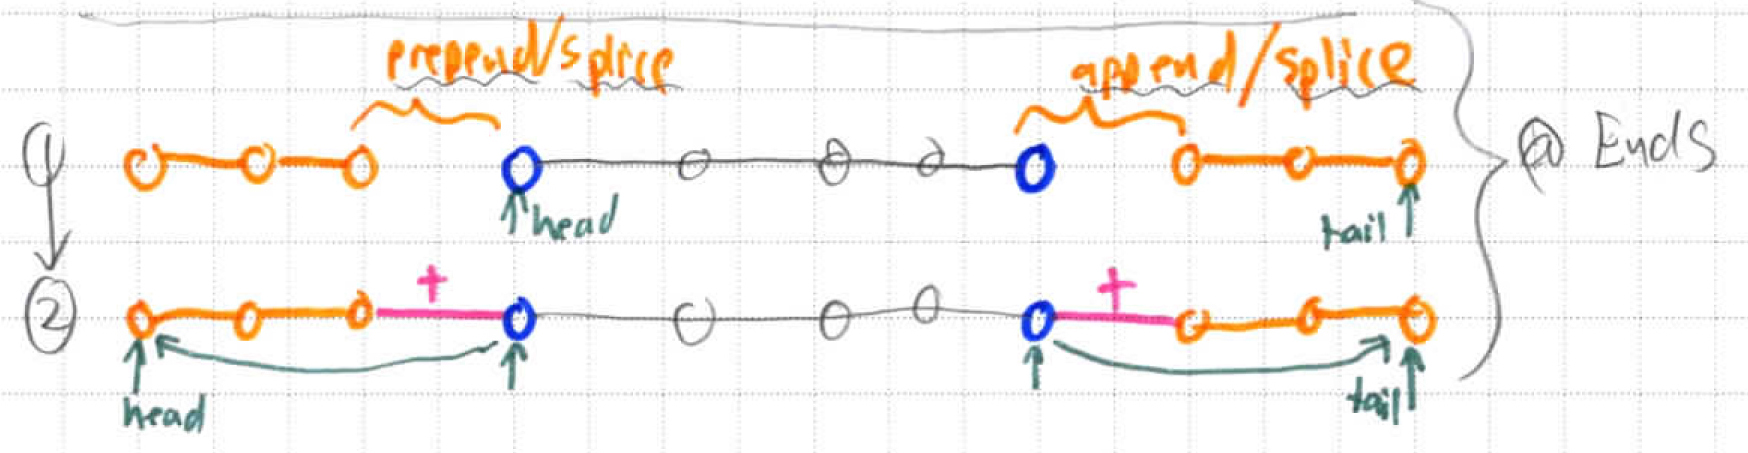 prepend/splice append/splice
① @ Ends
head tail
+ +
②
head tail